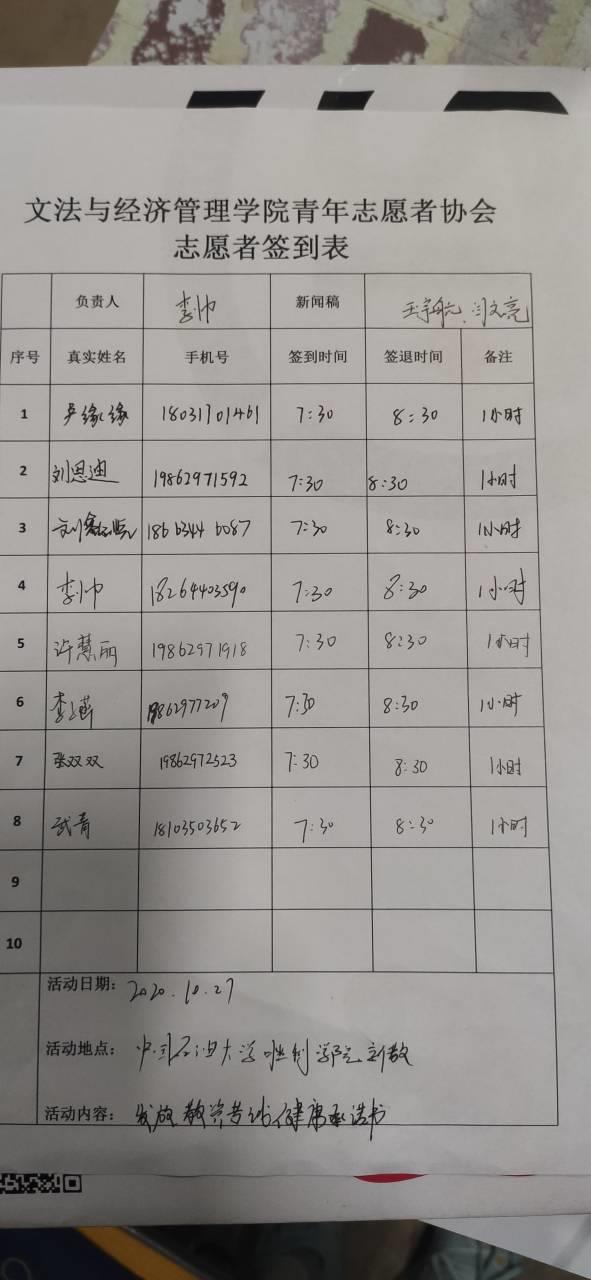 文法与经济管理学院青年志愿者协会
志愿者签到表
负责人 李帅 新闻稿 王宇航、闫文亮
序号 真实姓名 手机号 签到时间 签退时间 备注
1 缘缘 18031701461 7:30 8:30 1小时
2 刘思迪 19862971592 7:30 8:30 1小时
3 18663446087 7:30 8:30 1小时
4 李帅 18264403590 7:30 8:30 1小时
5 许慧丽 19862971918 7:30 8:30 1小时
6 李 19862977209 7:30 8:30 1小时
7 张双双 19862972523 7:30 8:30 1小时
8 武青 18103503652 7:30 8:30 1小时
9
10
活动日期: 2020.10.27
活动地点: 中国石油大学胜利学院新教
活动内容: 发放教资考试健康承诺书